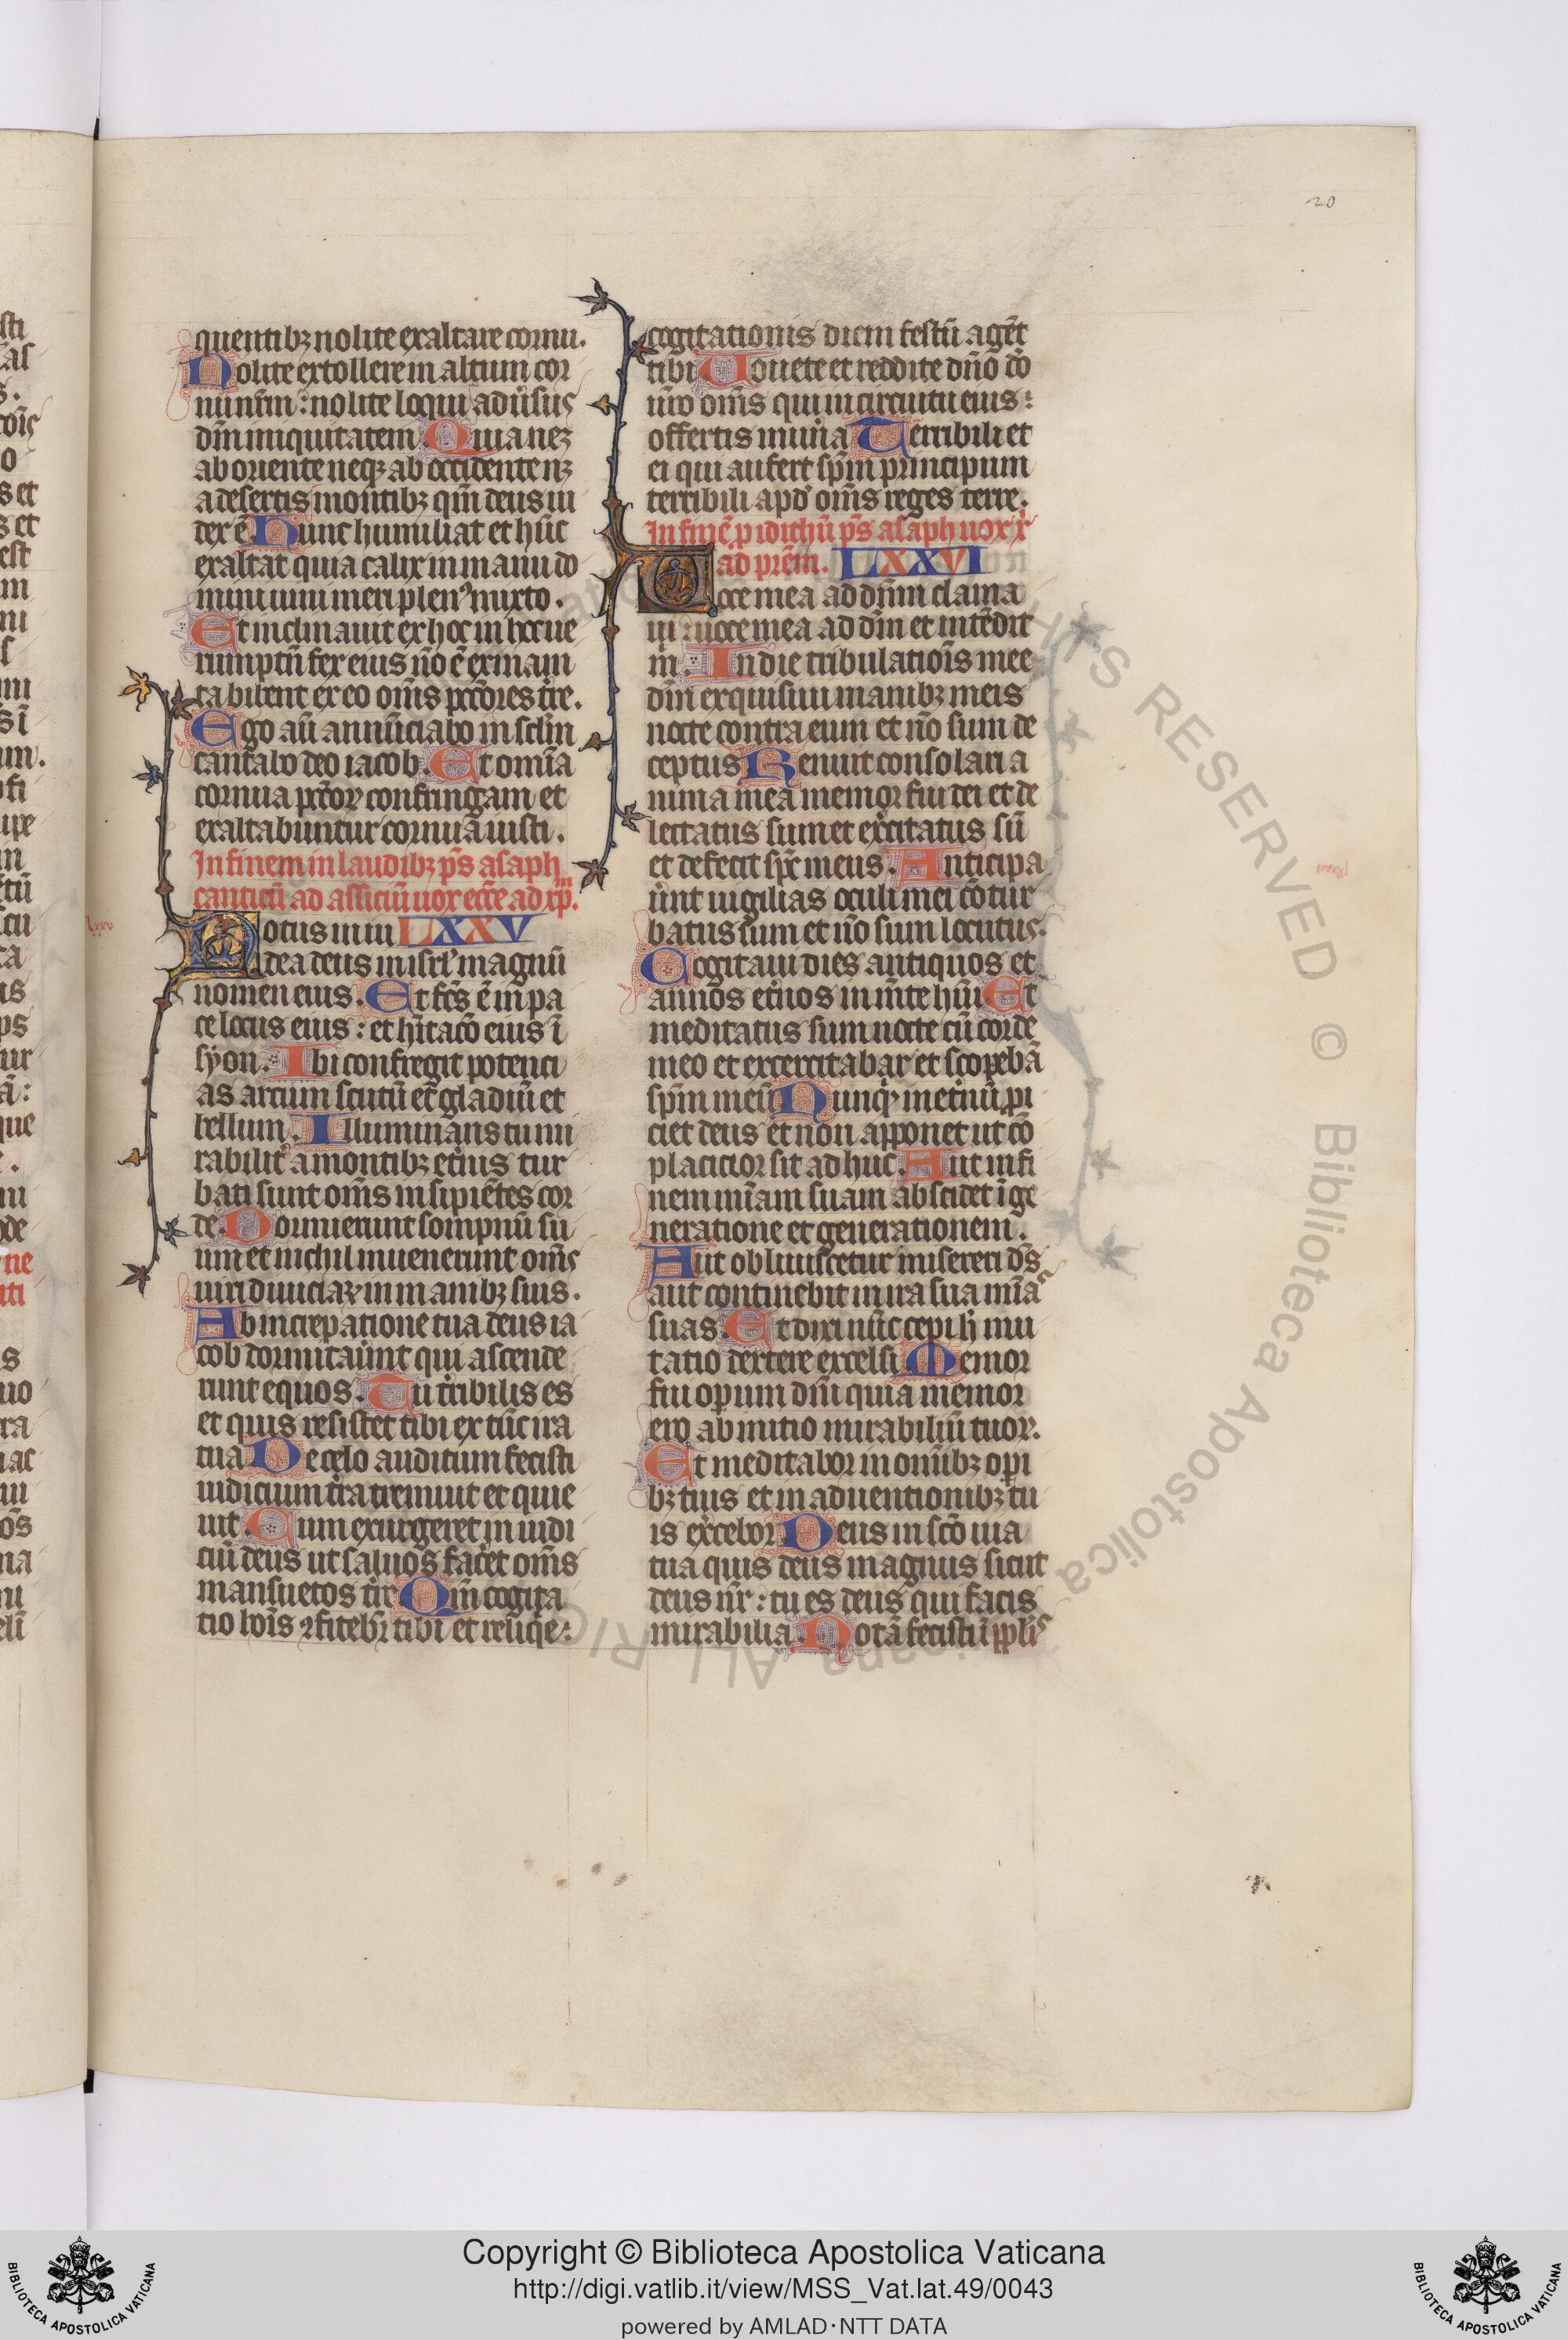 20
quentibꝫ nolite exaltare cornu.
Nolite extollere in altum cor
nu ur̄m : nolite loqui adūsus
dm̄ iniquitatem Quia neqꝫ
ab oriente neqꝫ ab occidente nqꝫ
a desertis montibꝫ qm̄ deus iu
dex ē Hunc humiliat et hūc
exaltat quia calix in manu do
mini uini meri plenꝰ mixto.
Et inclinauit ex hoc in hoc ue
rumptn̄ fex eius nō ē exinani
ta bibent ex eo om̄s pctōres tr̄e.
Ego aū annūciabo in sclm̄
cantabo deo iacob. Et omīa
cornua pctōꝝ confringam et
exaltabuntur cornua iusti.
In finem in laudibꝫ ps̄ asaph
canticū ad assiriū uox ecc̄e ad xp̄m.
Notus in iu LXXV
dea deus in isrl̄ magnū
nomen eius. Et fc̄s ē in pa
ce locus eius : et hītaco̅ eius ī
syon. Ibi confregit potenci
as arcum scutū et gladiū et
bellum. Illuminans tu mi
rabilit̄ a montibꝫ etn̄is tur
bati sunt om̄s insipiētes cor
de. Dormierunt sompnū su
um et nichil inuenerunt om̄s
uiri diuiciaꝝ in manibꝫ suis.
Ab increpatione tua deus ia
cob dormitaūnt qui ascende
runt equos. Tu tribilis es
et quis resistet tibi ex tūc ira
tua De celo auditum fecisti
iudicium tr̄a tremuit et quie
uit. Cum exurgeret in iudi
ciū deus ut saluos fac̄et om̄s
mansuetos tr̄e Qm̄ cogita
tio hoīs ꝯfitebr̄ tibi et reliqͥe :
cogitationis diem festū agēt
tibi Uouete et reddite dn̄o dō
ur̄o om̄s qui in circuitu eius :
offertis mun̄a Terribili et
ei qui aufert spm̄ principum
terribili apd̓ om̄s reges terre.
In finē p idithū ps̄ asaph uox x̄
ad prēm. LXXVI
Uoce mea ad dnm̄ clama
ui : uoce mea ad dm̄ et intēdit
m̄. In die tribulatiōis mee
dm̄ exquisiui manibꝫ meis
nocte contra eum et nō sum de
ceptus Renuit consolari a
nima mea memor fui dei et de
lectatus sum et exc̄itatus sū
et defecit spc̄ meus. Anticipa
ūnt uigilias oculi mei cōtur
batus sum et nō sum locutus.
Cogitaui dies antiquos et
annos etn̄os in m̄te hūi Et
meditatus sum nocte cū corde
meo et excercitabar et scopebā
spm̄ meū Nunqͥd in etn̄ū ꝓi
ciet deus et non apponet ut cō
placitior sit adhuc. Aut in fi
nem mīam suam abscidet ī ge
neratione et generationem.
Aut obliuiscetur misereri ds̄
aut continebit in ira sua mīas
suas. Et dixi nūc cepi h̓ mu
tatio dextere excelsi Memor
fui opum dn̄i quia memor
ero ab initio mirabiliū tuoꝝ.
Et meditabor in om̄ibꝫ opi
bꝫ tuis et in aduentionibꝫ tu
is exc̄ebor. Deus in scō uia
tua quis deus magnus sicut
deus nr̄ : tu es deus qui facis
mirabilia. Notā fecisti ī pplīs
lxxv
ALL RIGHTS RESERVED © Biblioteca Apostolica Vaticana
Copyright © Biblioteca Apostolica Vaticana
http://digi.vatlib.it/view/MSS_Vat.lat.49/0043
powered by AMLAD·NTT DATA
BIBLIOTECA APOSTOLICA VATICANA
BIBLIOTECA APOSTOLICA VATICANA